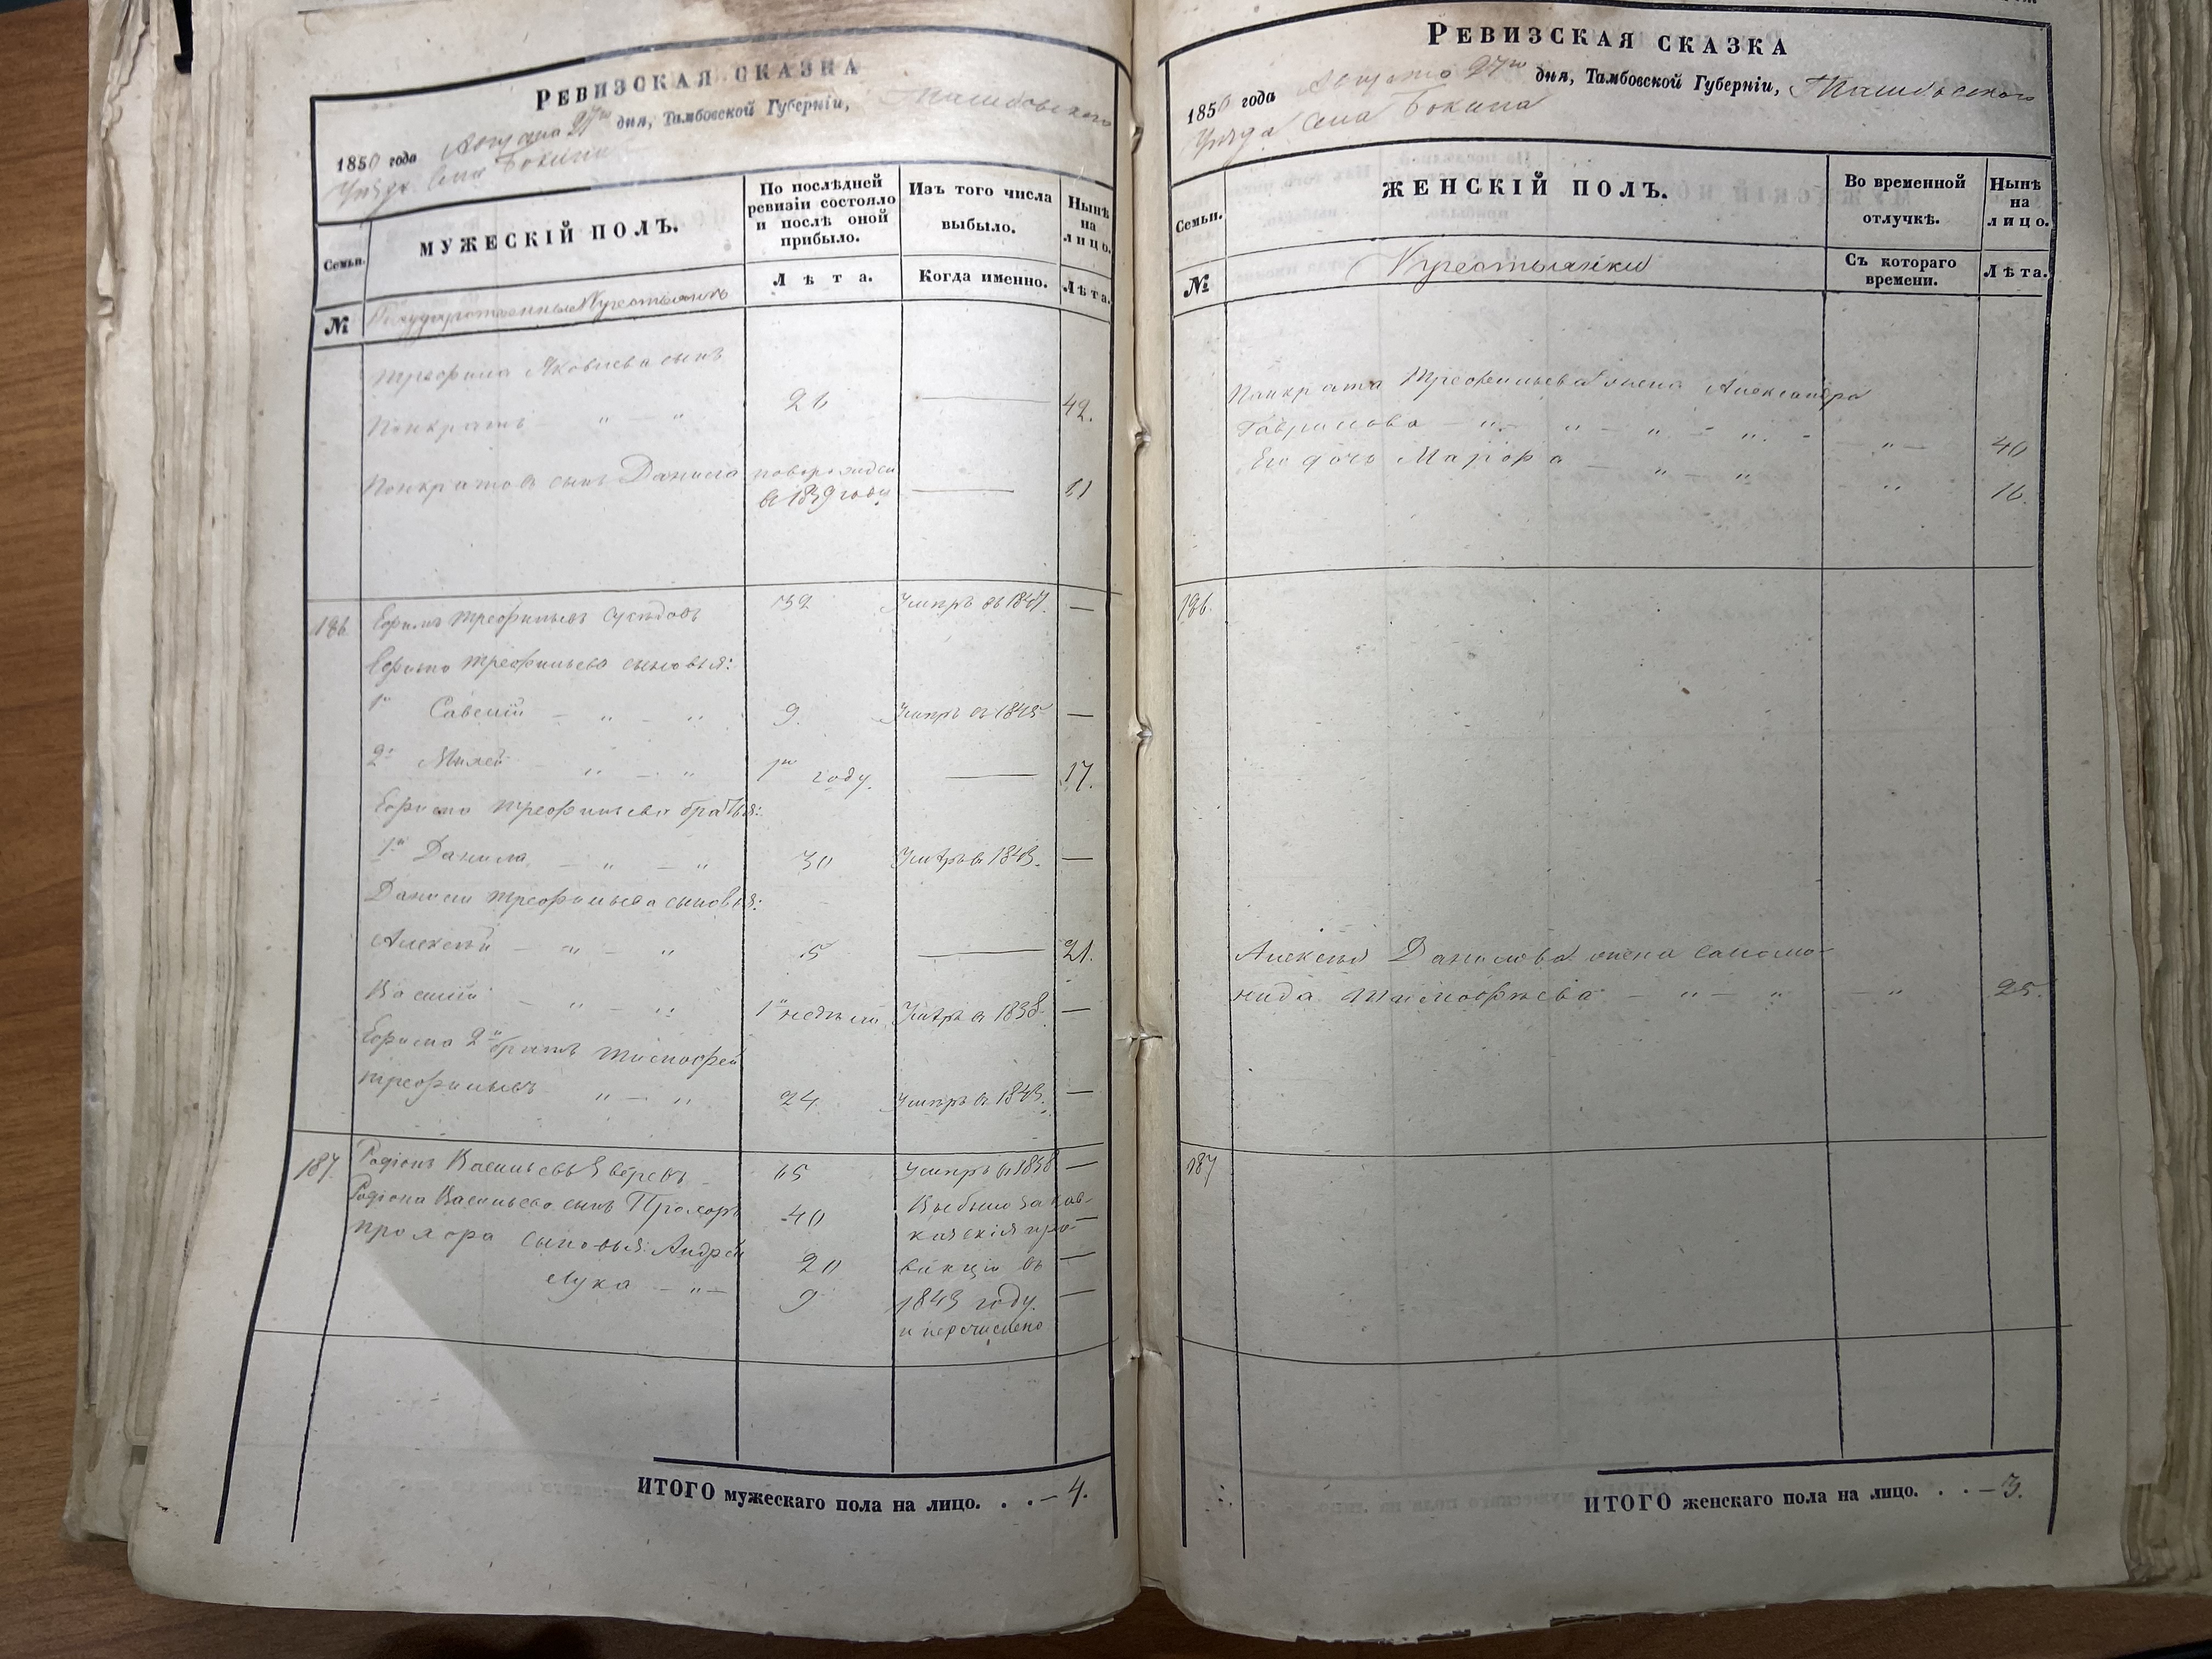 РЕВИЗСКАЯ СКАЗКА
1850 года Августа 27го дня, Тамбовской Губерніи, Тамбовскаго
Уѣзда Села Бокина
Семьи.
МУЖЕСКІЙ ПОЛЪ.
По послѣдней ревизіи состояло и послѣ оной прибыло.
Изъ того числа выбыло.
Нынѣ на лицо.
№
Государственные Крестьяне
Лѣта.
Когда именно.
Лѣта.
Треофила Яковлева сынъ
Понкратъ — " — " 26 — 42.
Понкратов сынъ Данила новорожден
въ 1839 году — 11
186 Ефимъ Треофильевъ Суседовъ 39 Умеръ въ 1847. —
Ефима Треофильева сыновья:
1й Савелій — " — " 9. Умеръ въ 1845 —
2й Милей — " — " 1го году. — 17.
Ефима Треофильева братья:
1й Данила — " — " 30 Умеръ в 1843. —
Данилы Треофильева сыновья:
Алексѣй — " — " 5 — 21.
Василій — " — " 1й недѣли Умеръ в 1838 —
Ефима 2й братъ Тимофей
Треофильевъ " — " 24 Умеръ в 1843. —
187. Родіонъ Васильевъ Зверекъ 65 Умеръ в 1838 —
Родіона Васильева сынъ Прохоръ 40 Выбыли за кав- —
Прохора сыновья: Андрей 20 казскія про-
винціи въ —
Лука — " — 9 1843 году. —
и перечислено
ИТОГО мужескаго пола на лицо. . . — 4.
РЕВИЗСКАЯ СКАЗКА
1850 года Августа 27го дня, Тамбовской Губерніи, Тамбовскаго
Уѣзда Села Бокина
Семьи.
ЖЕНСКІЙ ПОЛЪ.
Во временной отлучкѣ.
Нынѣ на лицо.
№
Крестьянки
Съ котораго времени.
Лѣта.
Понкрата Треофильева жена Александра
Гаврилова — " — " — " — " — " — 40
Его дочь Марфа — " — " " 16.
186.
Алексѣя Данилова жена Саломо-
нида Тимофѣева — " — " — " 25.
187
ИТОГО женскаго пола на лицо. . . — 3.